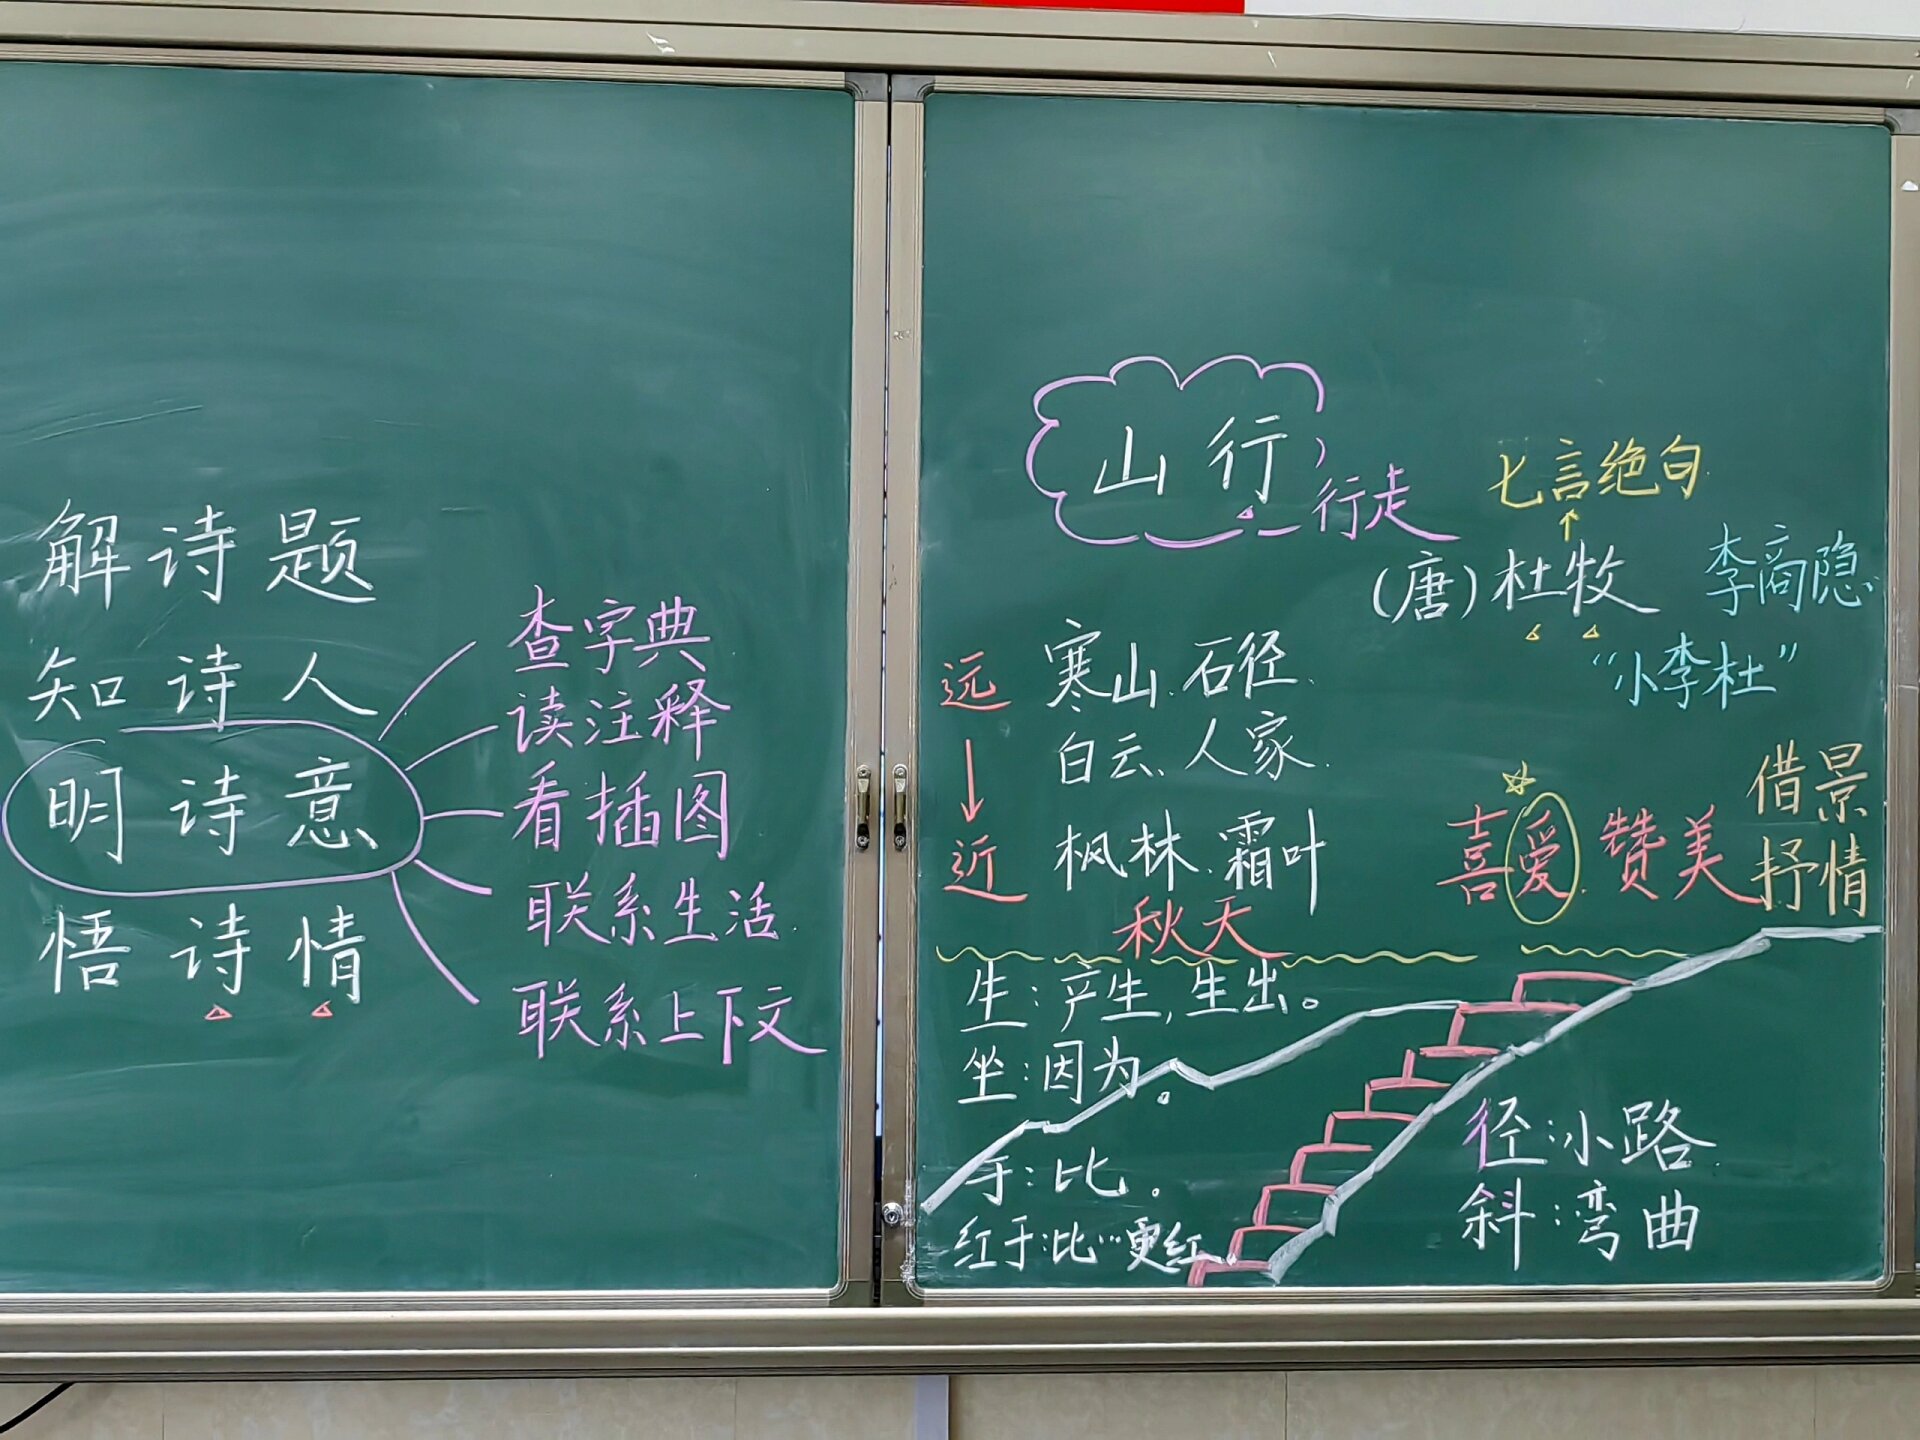 解诗题
知诗人
明诗意
悟诗情
查字典
读注释
看插图
联系生活
联系上下文
山行
行走
七言绝句
(唐)杜牧
李商隐
“小李杜”
远
近
寒山、石径、
白云、人家、
枫林、霜叶
秋天
喜爱、赞美
借景
抒情
生:产生,生出。
坐:因为。
于:比。
红于:比…更红。
径:小路
斜:弯曲